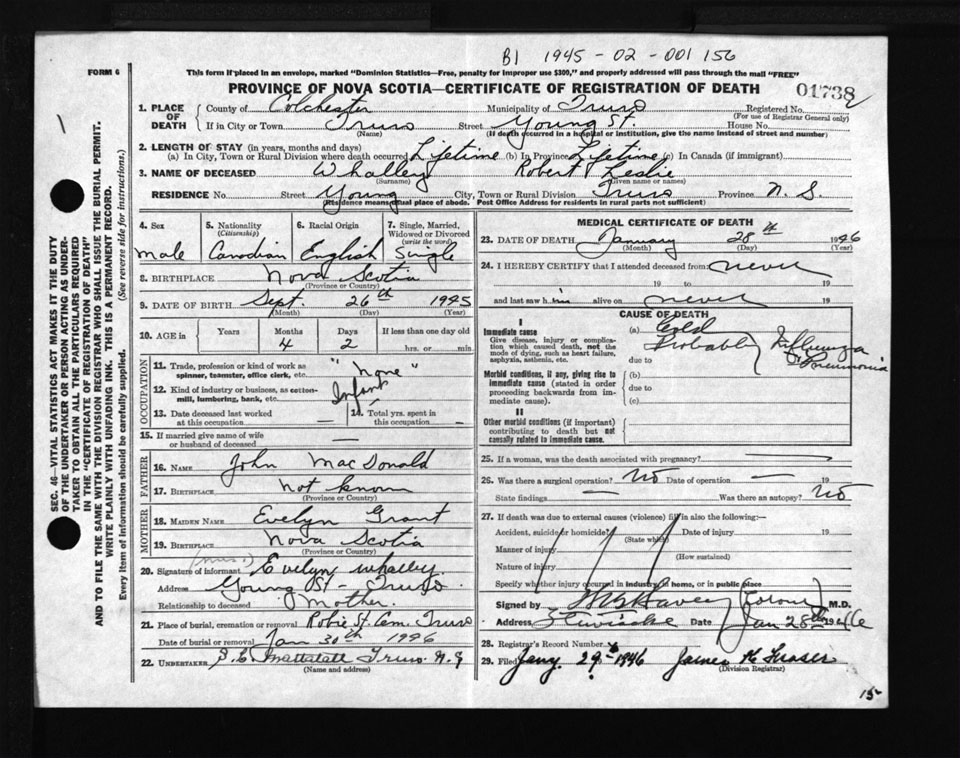 B1 1945 - 02 - 001 156
FORM 6
This form if placed in an envelope, marked "Dominion Statistics—Free, penalty for improper use $300," and properly addressed will pass through the mail "FREE"
PROVINCE OF NOVA SCOTIA—CERTIFICATE OF REGISTRATION OF DEATH
01738
1. PLACE OF DEATH { County of Colchester Municipality of Truro Registered No.
(For use of Registrar General only)
If in City or Town Truro Street Young St. House No.
(Name) (If death occurred in a hospital or institution, give the name instead of street and number)
2. LENGTH OF STAY (in years, months and days)
(a) In City, Town or Rural Division where death occurred Lifetime (b) In Province Lifetime (c) In Canada (if immigrant)
3. NAME OF DECEASED Whalley Robert Leslie
(Surname) (Given name or names)
RESIDENCE No. Street Young City, Town or Rural Division Truro Province N. S.
(Residence means usual place of abode. Post Office Address for residents in rural parts not sufficient)
4. Sex
male
5. Nationality
(Citizenship)
Canadian
6. Racial Origin
English
7. Single, Married, Widowed or Divorced
(write the word)
Single
8. BIRTHPLACE Nova Scotia
(Province or Country)
9. DATE OF BIRTH Sept. 26th 1945
(Month) (Day) (Year)
10. AGE in Years Months Days If less than one day old
4 2 hrs. or min.
OCCUPATION
11. Trade, profession or kind of work as spinner, teamster, office clerk, etc. "None"
12. Kind of industry or business, as cotton-mill, lumbering, bank, etc. Infant
13. Date deceased last worked at this occupation —
14. Total yrs. spent in this occupation —
15. If married give name of wife or husband of deceased —
FATHER
16. NAME John MacDonald
17. BIRTHPLACE not known
(Province or Country)
MOTHER
18. MAIDEN NAME Evelyn Grant
19. BIRTHPLACE Nova Scotia
(Province or Country)
(mrs.)
20. Signature of informant Evelyn Whalley
Address Young St - Truro
Relationship to deceased Mother.
21. Place of burial, cremation or removal Robie St. Cem. Truro
Date of burial or removal Jan 30th 1946
22. UNDERTAKER Truro. N.S
(Name and address)
MEDICAL CERTIFICATE OF DEATH
23. DATE OF DEATH January 28th 1946
(Month) (Day) (Year)
24. I HEREBY CERTIFY that I attended deceased from never
19 to 19
and last saw him alive on never 19
CAUSE OF DEATH
I
Immediate cause
Give disease, injury or complication which caused death, not the mode of dying, such as heart failure, asphyxia, asthenia, etc.
(a) Cold
Probably Influenza
due to Pneumonia
Morbid conditions, if any, giving rise to immediate cause (stated in order proceeding backwards from immediate cause).
(b)
due to
(c)
II
Other morbid conditions (if important) contributing to death but not causally related to immediate cause.
25. If a woman, was the death associated with pregnancy? —
26. Was there a surgical operation? No Date of operation —
State findings — Was there an autopsy? No
27. If death was due to external causes (violence) fill in also the following:—
Accident, suicide or homicide? Date of injury 19
(State which)
Manner of injury
(How sustained)
Nature of injury
Specify whether injury occurred in industry, in home, or in public place
Signed by M.D.
Address Date Jan 28th 1946
28. Registrar's Record Number
29. Filed Jany. 29 - 1946 James K Fraser
(Division Registrar)
15
SEC. 46—VITAL STATISTICS ACT MAKES IT THE DUTY OF THE UNDERTAKER OR PERSON ACTING AS UNDERTAKER TO OBTAIN ALL THE PARTICULARS REQUIRED IN THE "CERTIFICATE OF REGISTRATION OF DEATH" AND TO FILE THE SAME WITH THE DIVISION REGISTRAR WHO SHALL ISSUE THE BURIAL PERMIT.
WRITE PLAINLY WITH UNFADING INK. THIS IS A PERMANENT RECORD.
Every item of information should be carefully supplied. (See reverse side for instructions.)